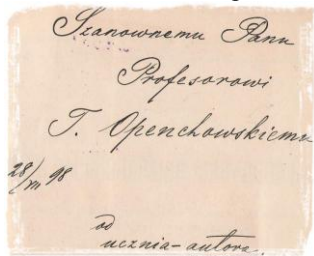 Szanownemu Panu
Profesorowi
T. Openchowskiemu
28/VII 98
od
ucznia-autora.